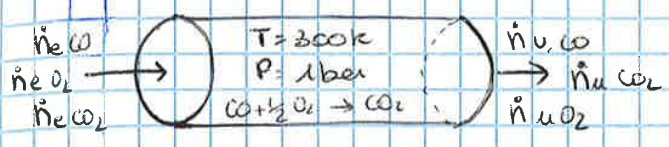 ṅe CO
ṅe O₂
ṅe CO₂
T = 300k
P = 1bar
CO + ½ O₂ → CO₂
ṅu, CO
ṅu CO₂
ṅu O₂